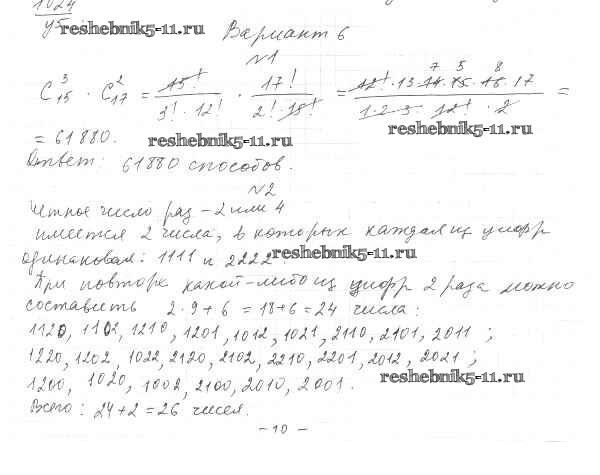 1024
y5
reshebnik5-11.ru
Вариант 6
№1
C₁₅³ · C₁₇² = 15!/(3! · 12!) · 17!/(2! · 15!) = (12! · 13 · 14 · 15 · 16 · 17)/(1 · 2 · 3 · 12! · 2) =
7 5 8
= 61880.
reshebnik5-11.ru
reshebnik5-11.ru
Ответ: 61880 способов.
№2
Четное число раз – 2 или 4
имеется 2 числа, в которых каждая из цифр
одинаковая: 1111 и 2222
reshebnik5-11.ru
При повторе какой-либо из цифр 2 раза можно
составить 2·9+6 = 18+6 = 24 числа:
1120, 1102, 1210, 1201, 1012, 1021, 2110, 2101, 2011;
1220, 1202, 1022, 2120, 2102, 2210, 2201, 2012, 2021;
1200, 1020, 1002, 2100, 2010, 2001.
reshebnik5-11.ru
Всего: 24+2 = 26 чисел.
– 10 –